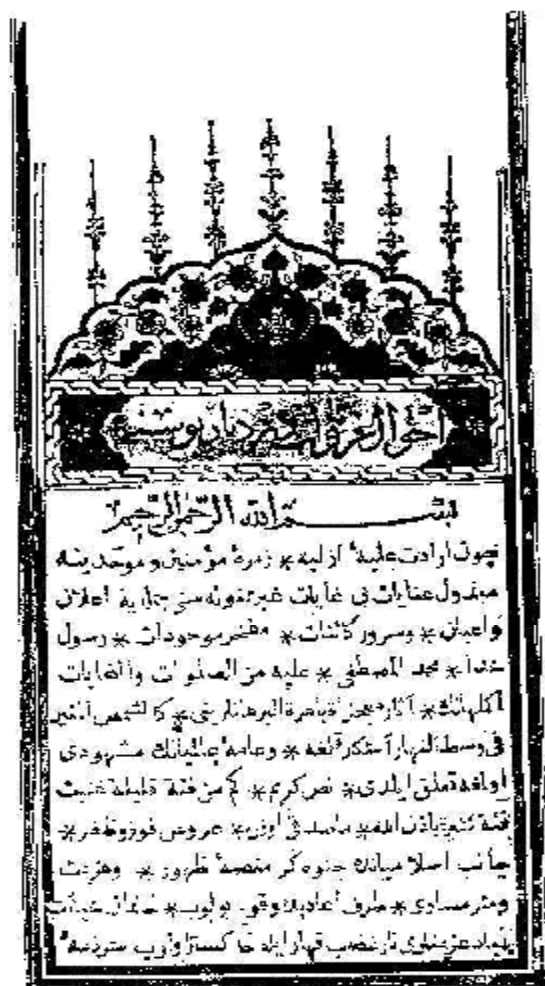 احوال غزوات در ديار بوسنه
بسم الله الرحمن الرحيم
چون ارادت عليهٔ ازليه * زمرهٔ مؤمنين و موحدينه
مبذول عنايات بى غايات غير ممنونه سنى اعلان
و اعيان * وسرور كائنات * مفخر موجودات * رسول
خدا * محمد المصطفى * عليه من الصلوات
اكملهانك * آثار باهرة البرهانلرينى * كالشمس المنير
فى وسط النهار آشكار قلغه * وعامهٔ عالميانك مشهودى
اولمغه تعلق ايلدى * نص كريم * كم من فئة قليلة غلبت
فئة كثيرة باذن الله * ماصدقى اوزره * عروس فوز وظفر *
جانب اسلاميانده جلوه كر منصهٔ ظهور * وهزيمت
طرف اعاديده وقوع بولوب * خانمان
نار غضب قهار ايله شرذمهٔ